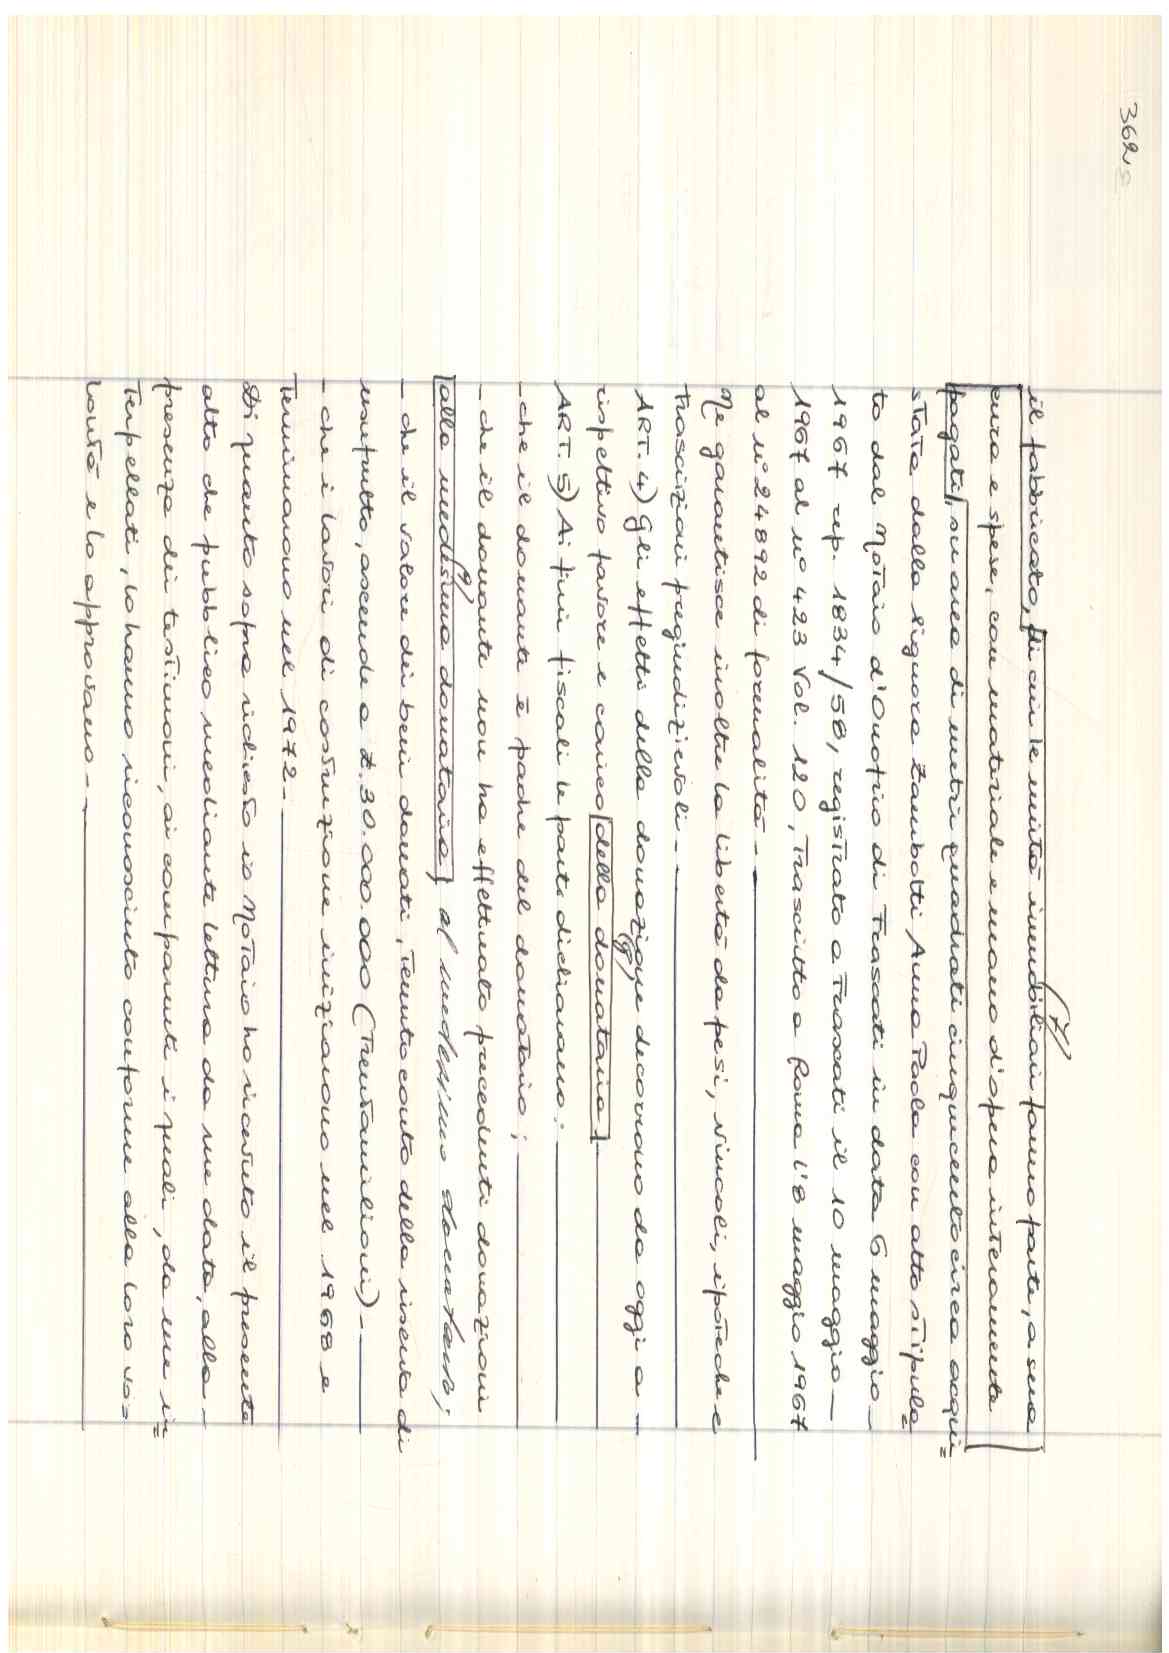 362
il fabbricato, di cui le unità immobiliari fanno parte, a sua
(7)
cura e spese, con materiale e mano d'opera interamente
pagati, su area di metri quadrati cinquecento circa acqui=
stata dalla signora Zambotti Anna Paola con atto stipula=
to dal Notaio d'Onofrio di Frascati in data 6 maggio -
1967 rep. 1834/58, registrato a Frascati il 10 maggio -
1967 al n° 423 Vol. 120, Trascritto a Roma l'8 maggio 1967
al n° 24892 di formalità -
Ne garantisce inoltre la libertà da pesi, vincoli, ipoteche e
Trascrizioni pregiudizievoli - -
ART. 4) Gli effetti della donazione decorrono da oggi a -
(8)
rispettivo favore e carico della donataria
ART. 5) Ai fini fiscali le parti dichiarano: -
- che il donante è padre del donatario;
- che il donante non ha effettuato precedenti donazioni
(9)
alla medesima donataria, al medesimo donatario;
- che il valore dei beni donati, Tenuto conto della riserva di
usufrutto, ascende a £. 30.000.000 (Trentamilioni) -
- che i lavori di costruzione iniziarono nel 1968 e
Terminarono nel 1972 -
Di quanto sopra richiesto io Notaio ho ricevuto il presente
atto che pubblico mediante lettura da me data, alla -
presenza dei testimoni, ai comparenti i quali, da me in=
Terpellati, lo hanno riconosciuto conforme alla loro vo=
lontà e lo approvano - -